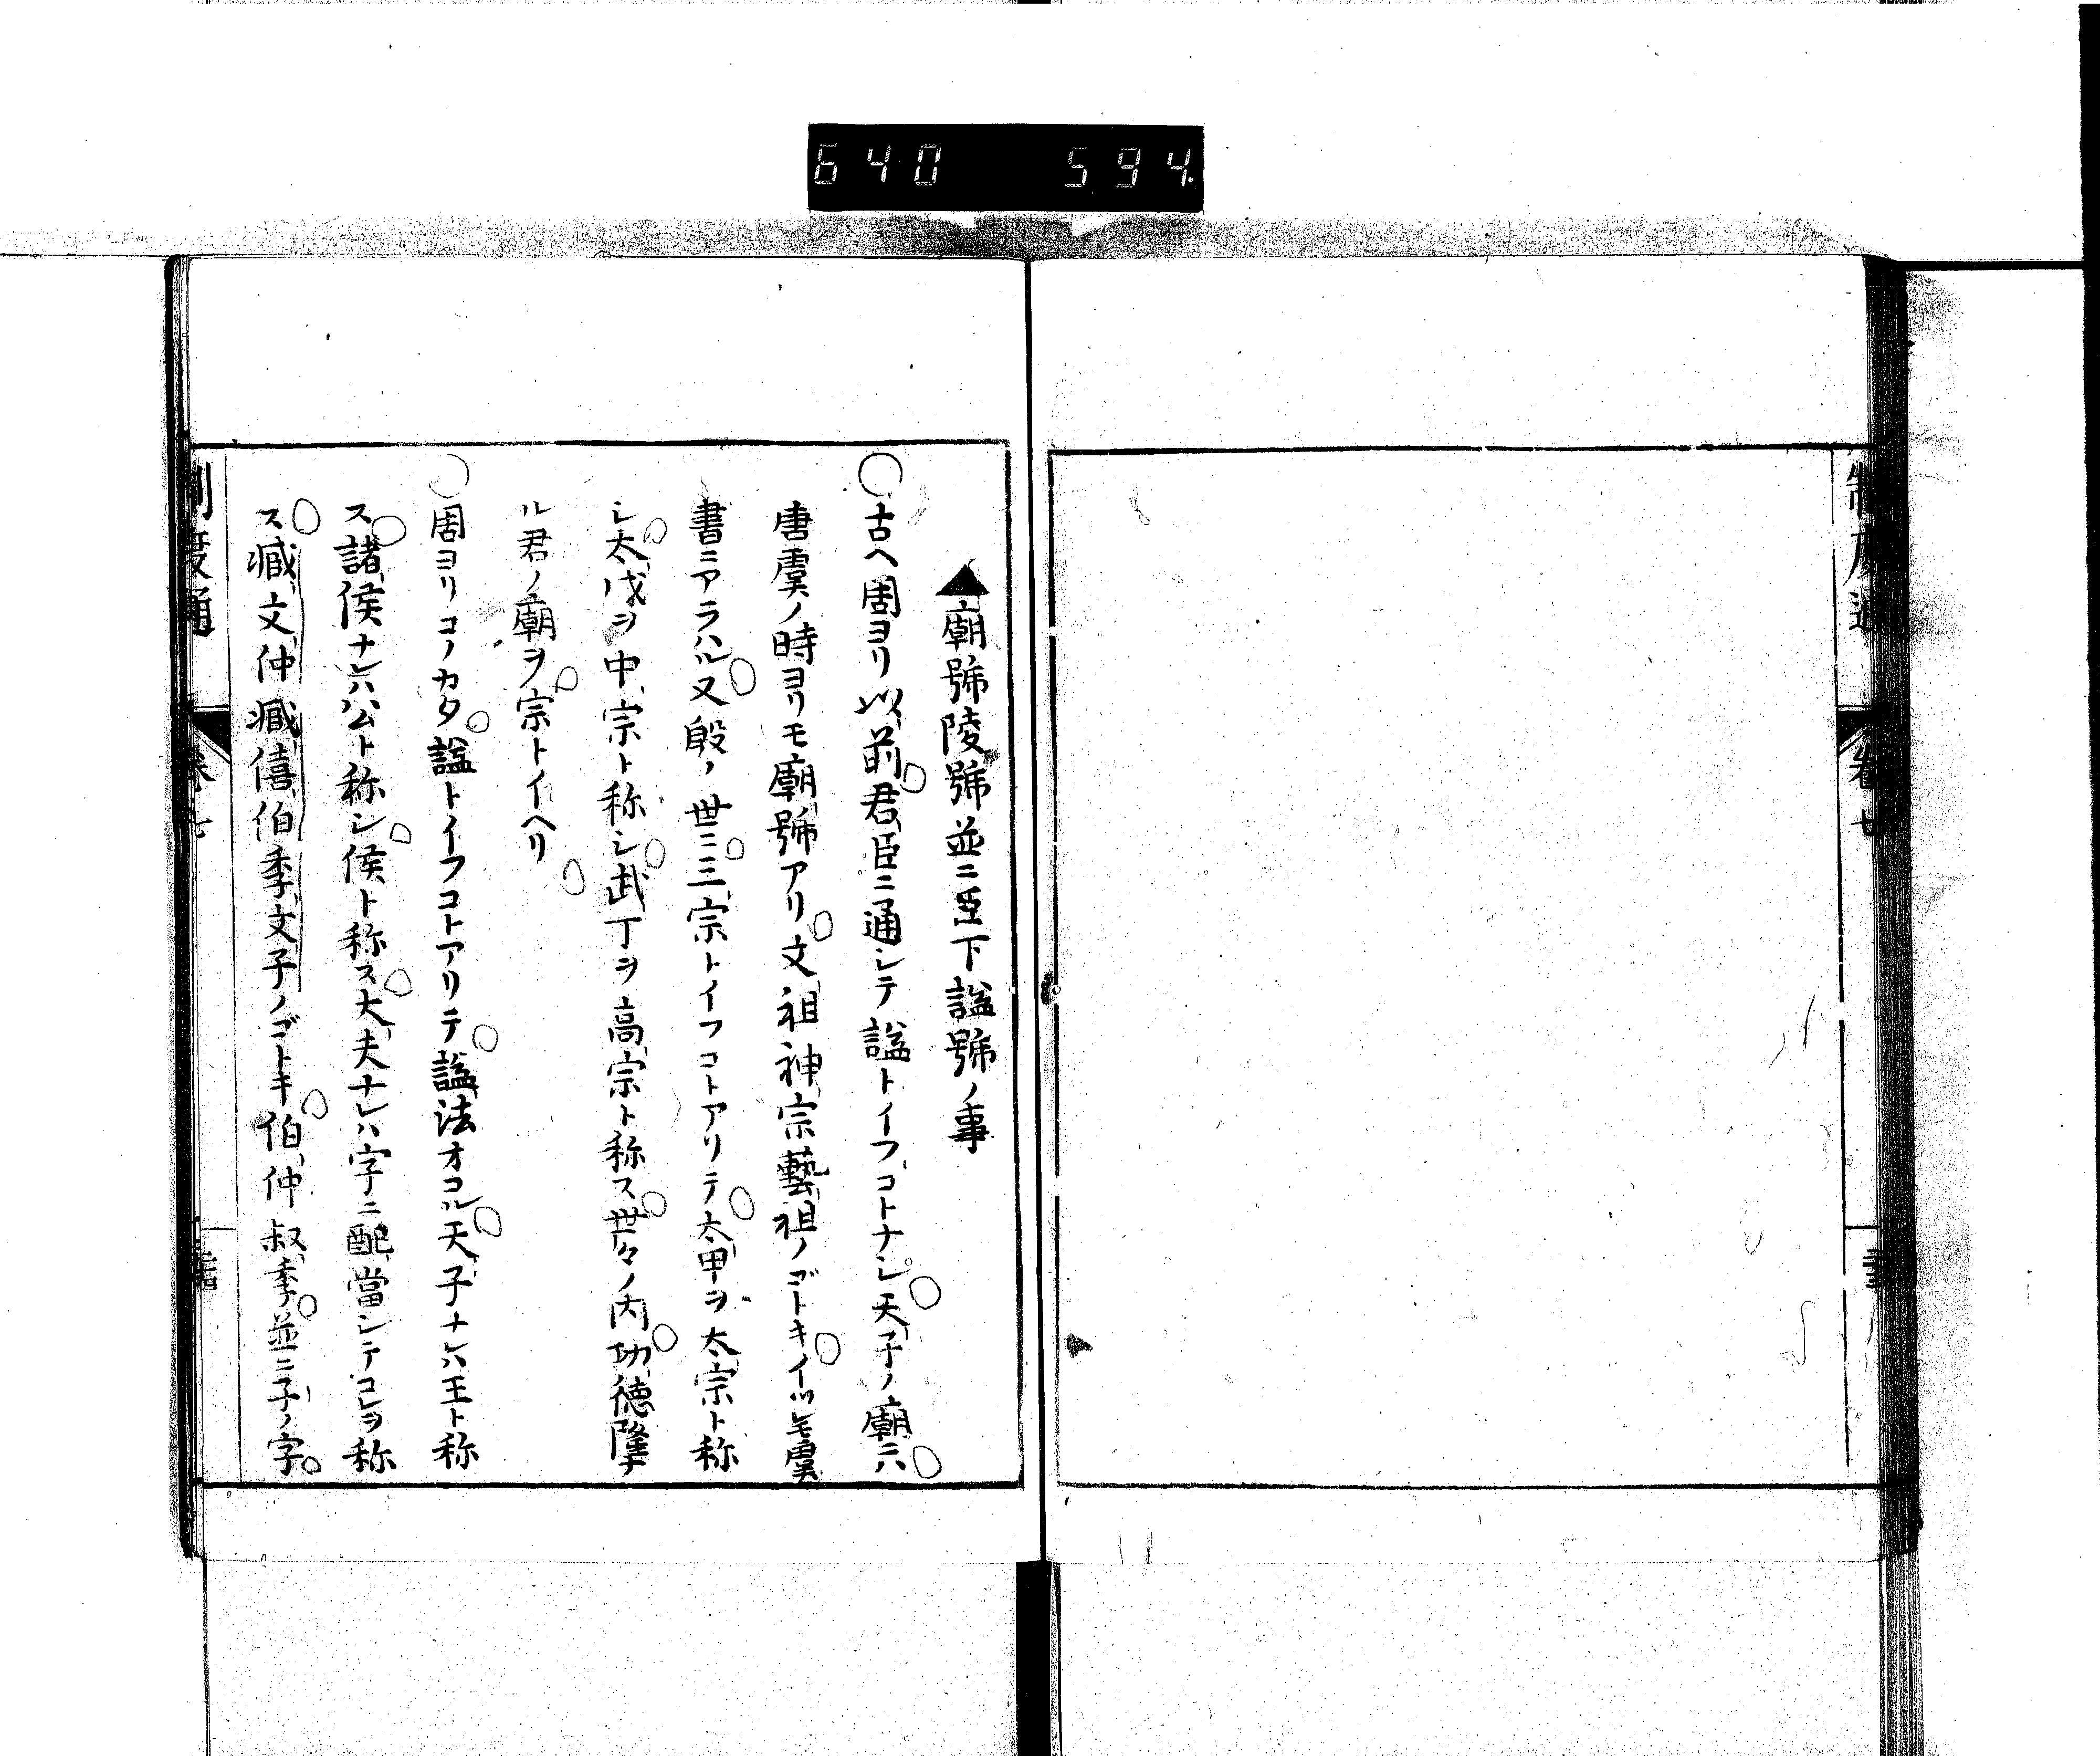 640 594.
制度通
卷七
▲廟號陵號並ニ臣下諡號ノ事
○古ヘ周ヨリ以前君臣ニ通シテ諡トイフコトナシ天子ノ廟ニハ
唐虞ノ時ヨリモ廟號アリ文祖神宗藝祖ノゴトキイツレモ虞
書ニアラハル又殷ノ世ニ三宗トイフコトアリテ太甲ヲ太宗ト称
シ太戊ヲ中宗ト称シ武丁ヲ高宗ト称ス世々ノ内功徳隆ナ
ル君ノ廟ヲ宗トイヘリ
○周ヨリコノカタ諡トイフコトアリテ諡法オコル天子ナレハ王ト称
ス諸侯ナレハ公ト称シ侯ト称ス大夫ナレハ字ニ配當シテコレヲ称
ス臧文仲臧僖伯季文子ノゴトキ伯仲叔季並ニ子ノ字
制度通
卷七